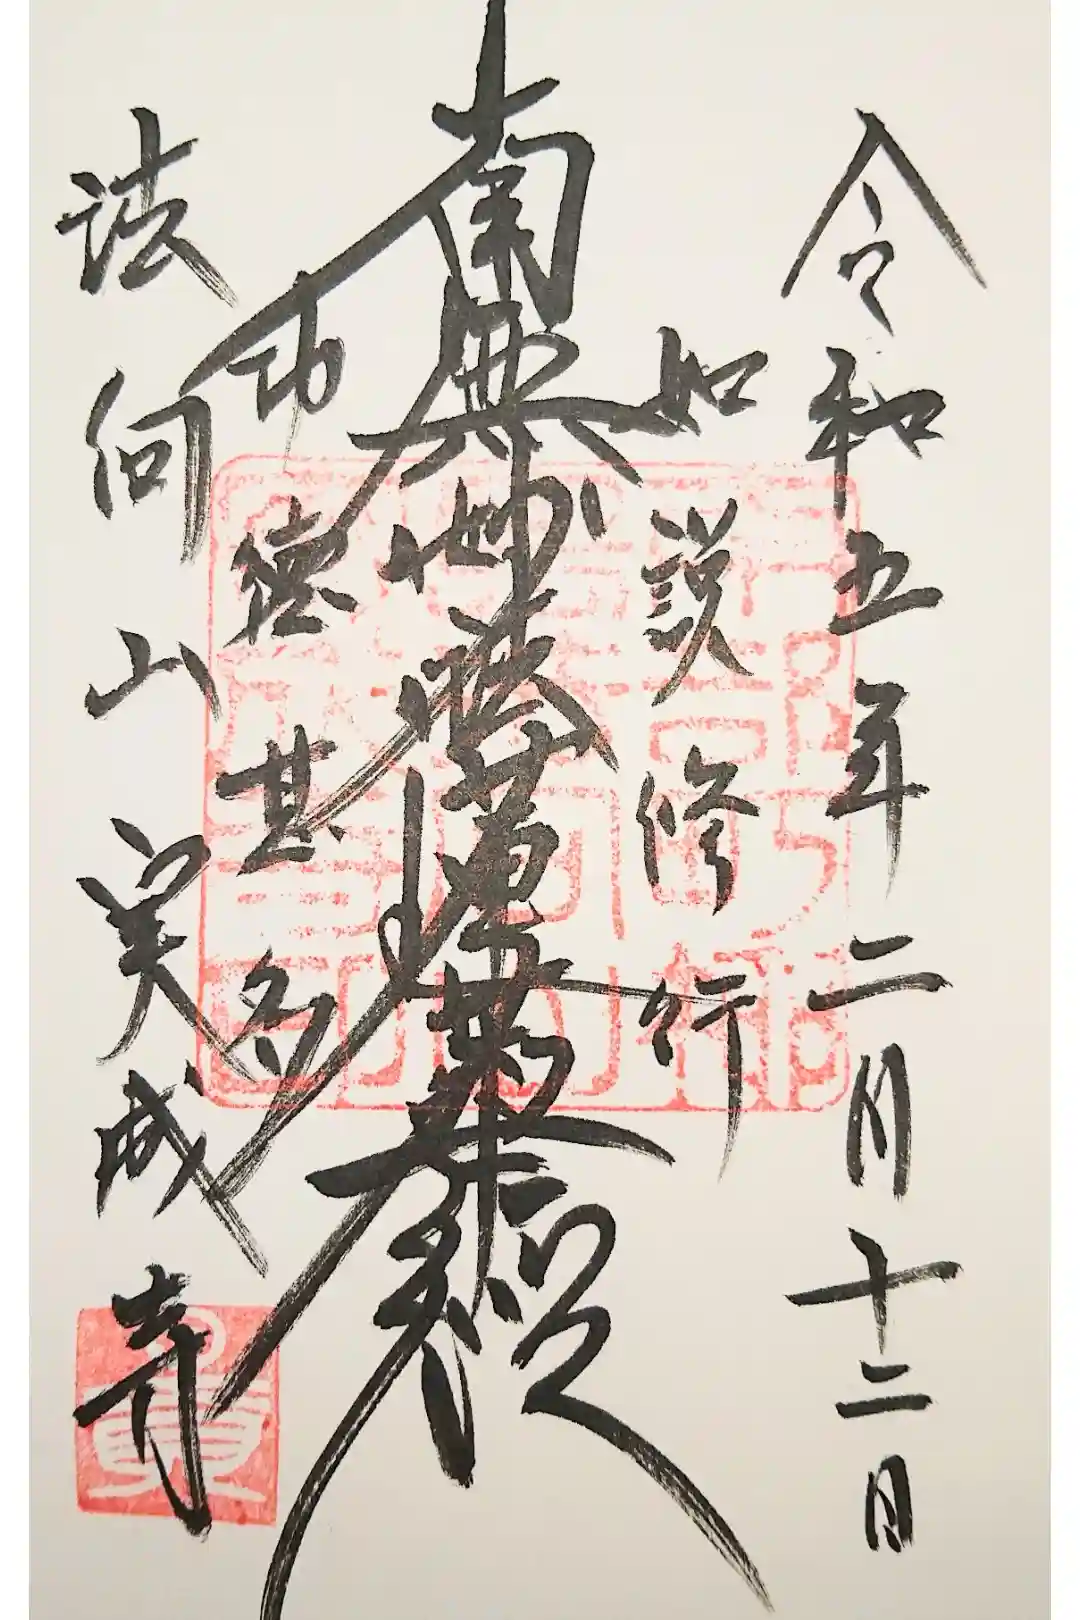 令和五年二月十二日
如説修行
南無妙法蓮華経
功徳甚多
法向山実成寺